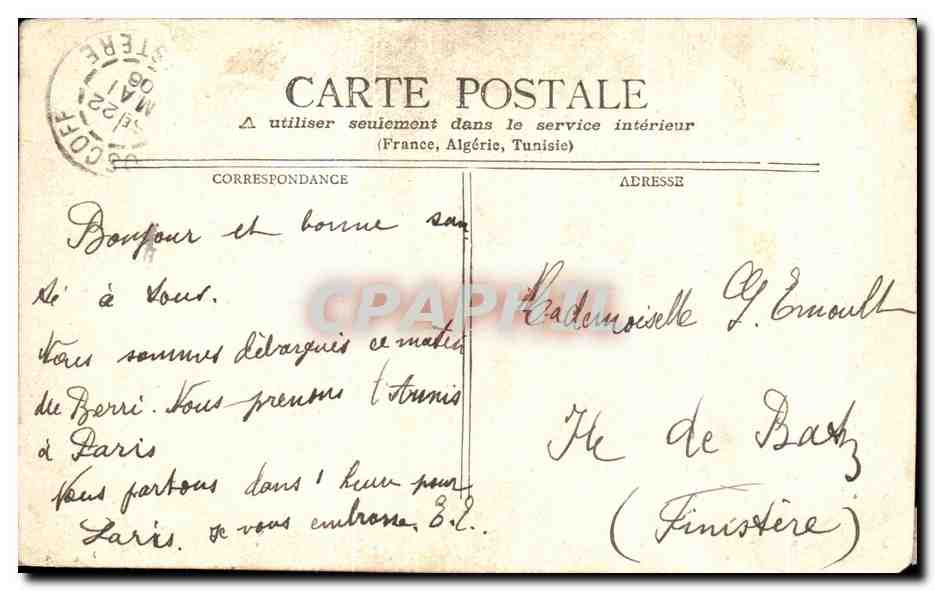 ROSCOFF
FINISTERE
22
MAI
06
CARTE POSTALE
A utiliser seulement dans le service intérieur
(France, Algérie, Tunisie)
CORRESPONDANCE
Bonjour et bonne san
té à tous.
Nous sommes débarqués ce matin
du Berri. Nous prenons l'Aunis
à Paris
Nous partons dans 1 heure pour
Paris. Je vous embrasse. E.E.
ADRESSE
Mademoiselle Y. Ernoult
Ile de Batz
(Finistère)
CPAPHIL